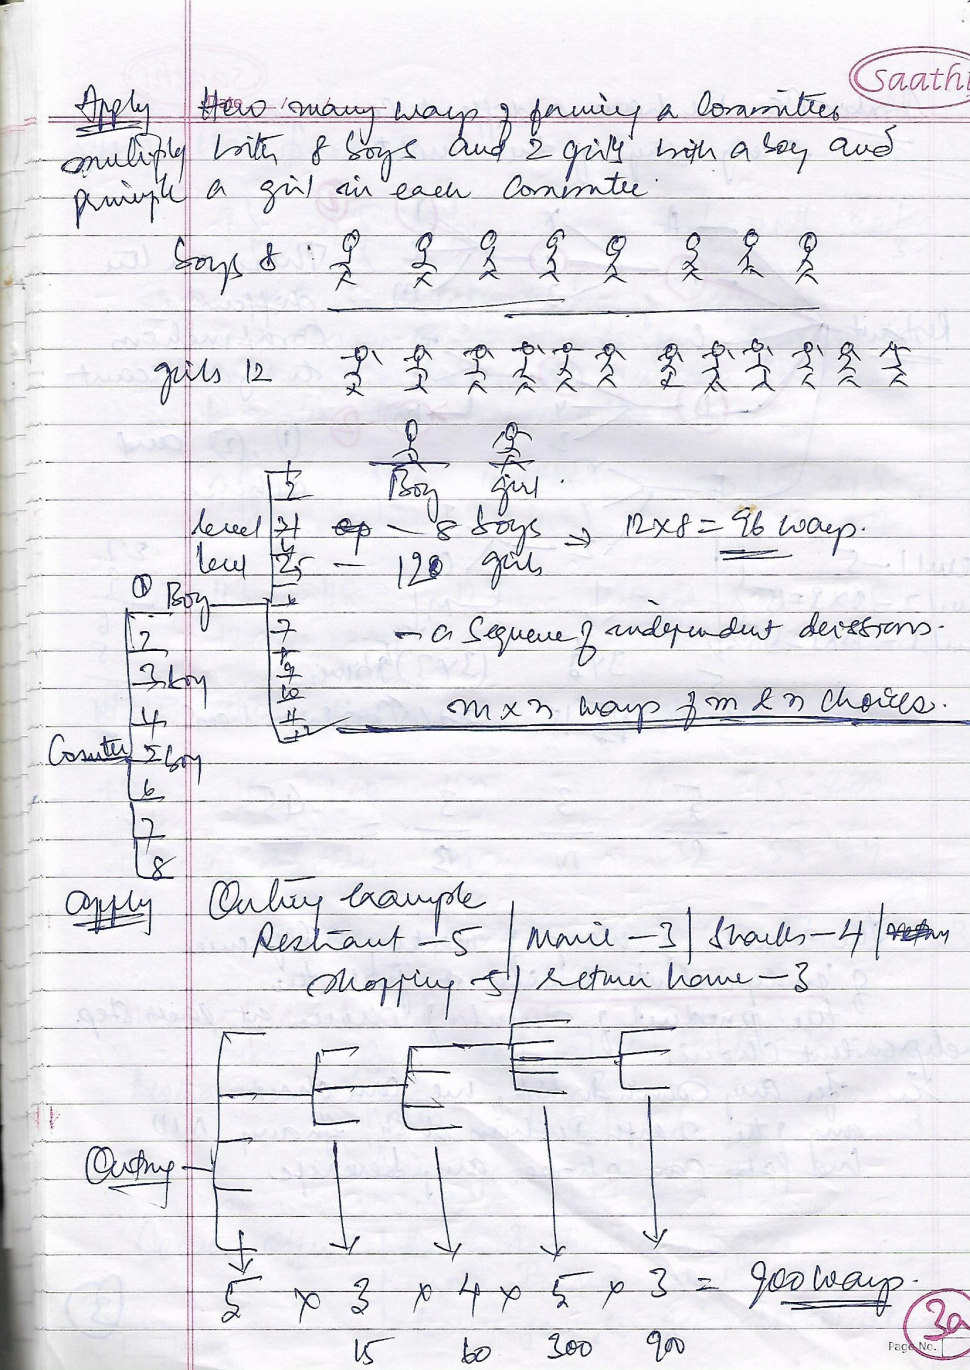 saathi
Date / /
Apply How many ways of forming a Committee
multiply with 8 boys and 2 girls with a boy and
principle a girl in each Committee.
boys 8 :
girls 12
1
2 Boy girl .
level 3 1 — 8 boys ⇒ 12x8 = 96 ways.
4
level 2 5 — 12 girls
① Boy 6
2 7 - a Sequence of independent decissions.
8
3 boy 9
10
4 11 m x n ways of m & n choices.
12
5 boy
6
7
8
apply Outing example
Restraunt - 5 | Movie - 3 | Snacks - 4 |
Shopping - 5 | return home - 3
Outing
5 x 3 x 4 x 5 x 3 = 900 ways.
15 60 300 900
Page No.